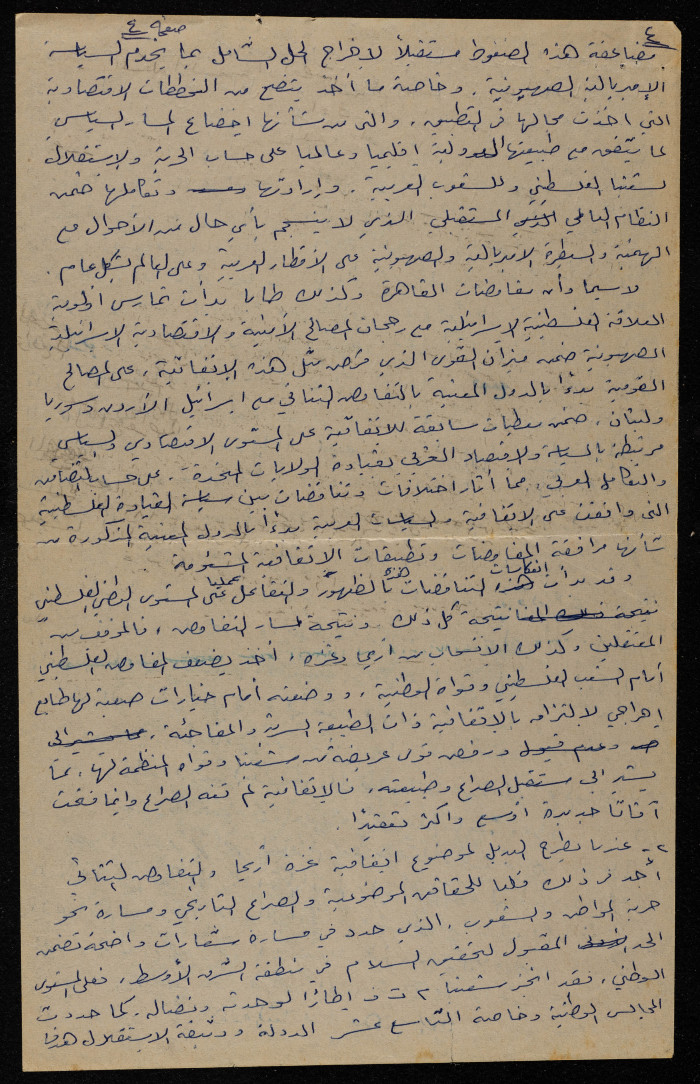 صفحة ٤
٤
مضاعفة هذه الضغوط مستقبلاً لإخراج الحل الشامل بما يخدم السياسة
الإمبريالية الصهيونية. وخاصة ما أخذ يتضح من المخططات الاقتصادية
التي اخذت مجالها في التطبيق، والتي من شأنها اخضاع المسار السياسي
لما يتفق مع طبيعتها الدولية اقليميا وعالميا على حساب الحرية والاستقلال
لشعبنا الفلسطيني وللشعوب العربية. وإرادتها وتكاملها ضمن
النظام العالمي المستقبلي. الذي لا ينسجم بأي حال من الأحوال مع
الهيمنة والسيطرة الامبريالية والصهيونية على الأقطار العربية وعلى العالم بشكل عام.
لا سيما وأن مفاوضات القاهرة وكذلك طابا بدأت تمارس أولوية
العلاقة الفلسطينية الإسرائيلية مع رجحان المصالح الأمنية والاقتصادية الإسرائيلية
الصهيونية ضمن ميزان القوى الذي فرض مثل هذه الاتفاقية، على المصالح
القومية بدءاً بالدول المعنية بالتفاوض الثنائي مع اسرائيل الأردن وسوريا
ولبنان، ضمن معطيات سابقة للاتفاقية على المستوى الاقتصادي والسياسي
مرتبطة بالسياسة والاقتصاد الغربي بقيادة الولايات المتحدة. على حساب التضامن
والتكامل العربي. مما أثار اختلافات وتناقضات بين سياسة القيادة الفلسطينية
التي وافقت على الاتفاقية والسياسات العربية بدءاً بالدول المعنية المذكورة من
شأنها مرافقة المفاوضات وتطبيقات الاتفاقية المشؤومة.
وقد بدأت انعكاسات هذه التناقضات بالظهور والتفاعل عمليا على المستوى الوطني الفلسطيني
نتيجة كل ذلك. ونتيجة لمسار التفاوض، فالموقف من
المعتقلين وكذلك الانسحاب من أريحا وغزة، أخذ يضعف المفاوض الفلسطيني
أمام الشعب الفلسطيني وقواه الوطنية، ووضعته أمام خيارات صعبة لها طابع
إحراجي لالتزامه بالاتفاقية ذات الطبيعة السرية والمفاجئة،
ورفض قوى عريضة من شعبنا وقواه المنظمة لها، مما
يشير الى مستقبل الصراع وطبيعته. فالاتفاقية لم تنه الصراع وانما فتحت
آفاقًا جديدة أوسع وأكثر تعقيدًا.
٢- عندما يطرح البديل لموضوع اتفاقية غزة أريحا والتفاوض الثنائي
أجد في ذلك قلبا للحقائق الموضوعية والصراع التاريخي ومساره نحو
حرية المواطن والشعوب، الذي حدد في مساره شعارات واضحة تضمن
الحد المقبول لتحقيق السلام في منطقة الشرق الأوسط. فعلى المستوى
الوطني، فقد انجز شعبنا م ت ف إطارًا لوحدته ونضاله، كما حددت
المجالس الوطنية وخاصة التاسع عشر الدولة ووثيقة الاستقلال هدفا